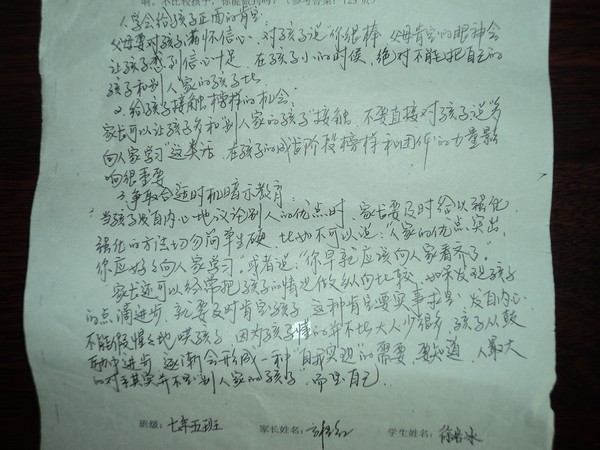 响，不比较孩子，你能做到吗？（参考答案：123 页）
1.学会给孩子正面的肯定：
父母要对孩子满怀信心，对孩子说“你很棒”父母肯定的眼神会
让孩子感到信心十足，在孩子小的时候，绝对不能把自己的
孩子和别人家的孩子比。
2.给孩子接触榜样的机会：
家长可以让孩子多和“别人家的孩子”接触，不要直接对孩子说“多
向人家学习”这类话，在孩子的成长阶段榜样和团体的力量影
响很重要
3.争取合适时机暗示教育：
当孩子发自内心地议论别人的优点时，家长要及时给以强化，
强化的方法切勿简单生硬，比如不可以说：“人家的优点突出，
你应好好向人家学习”或者说：“你早就应该向人家看齐了。”
家长还可以经常把孩子的情况做纵向比较，如果发现孩子
的点滴进步，就要及时肯定孩子，这种肯定要实事求是，发自内心，
不能假惺惺地哄孩子，因为孩子懂的并不比大人少很多，孩子从鼓
励中进步，逐渐会形成一种“自我实现”的需要，要知道，人最大
的对手其实并不是“别人家的孩子”，而是自己。
班级：七年五班 家长姓名： 学生姓名：徐